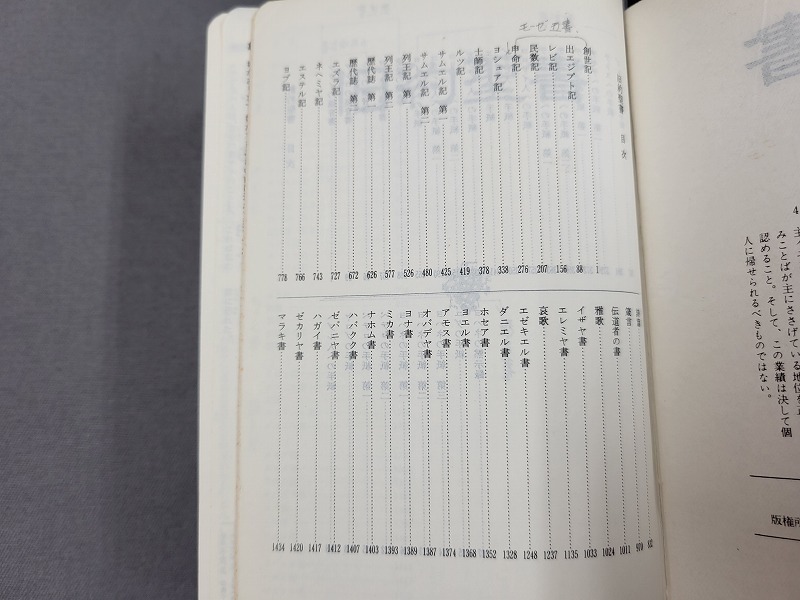 みことばが主にささげている地位を正
認めること。そして、この業績は決して個
人に帰せられるべきものではない。
版権所
モーゼ五書
旧約聖書 目次
創世記 1
出エジプト記 88
レビ記 156
民数記 207
申命記 276
ヨシュア記 338
士師記 378
ルツ記 419
サムエル記 第一 425
サムエル記 第二 480
列王記 第一 526
列王記 第二 577
歴代誌 第一 626
歴代誌 第二 672
エズラ記 727
ネヘミヤ記 743
エステル記 766
ヨブ記 778
詩篇
箴言 970
伝道者の書 1011
雅歌 1024
イザヤ書 1033
エレミヤ書 1135
哀歌 1237
エゼキエル書 1248
ダニエル書 1328
ホセア書 1352
ヨエル書 1368
アモス書 1374
オバデヤ書 1387
ヨナ書 1389
ミカ書 1393
ナホム書 1403
ハバクク書 1407
ゼパニヤ書 1412
ハガイ書 1417
ゼカリヤ書 1420
マラキ書 1434